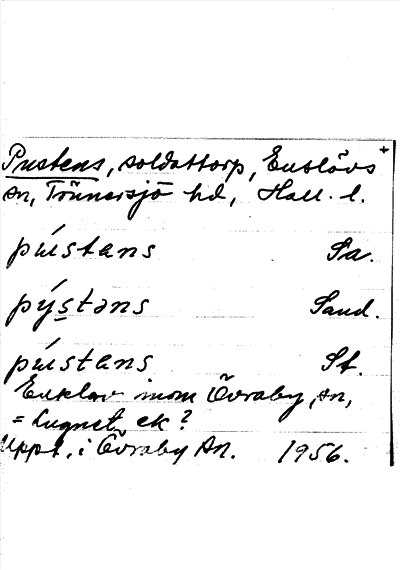 Pustens, soldattorp, Enslövs +
sn, Tönnersjö hd, Hall. l.
pústans Sa.
pýstəns Sand.
pústens St.
Enklav inom Övraby sn,
= Lugnet, ek?
Uppt. i Övraby sn. 1956.